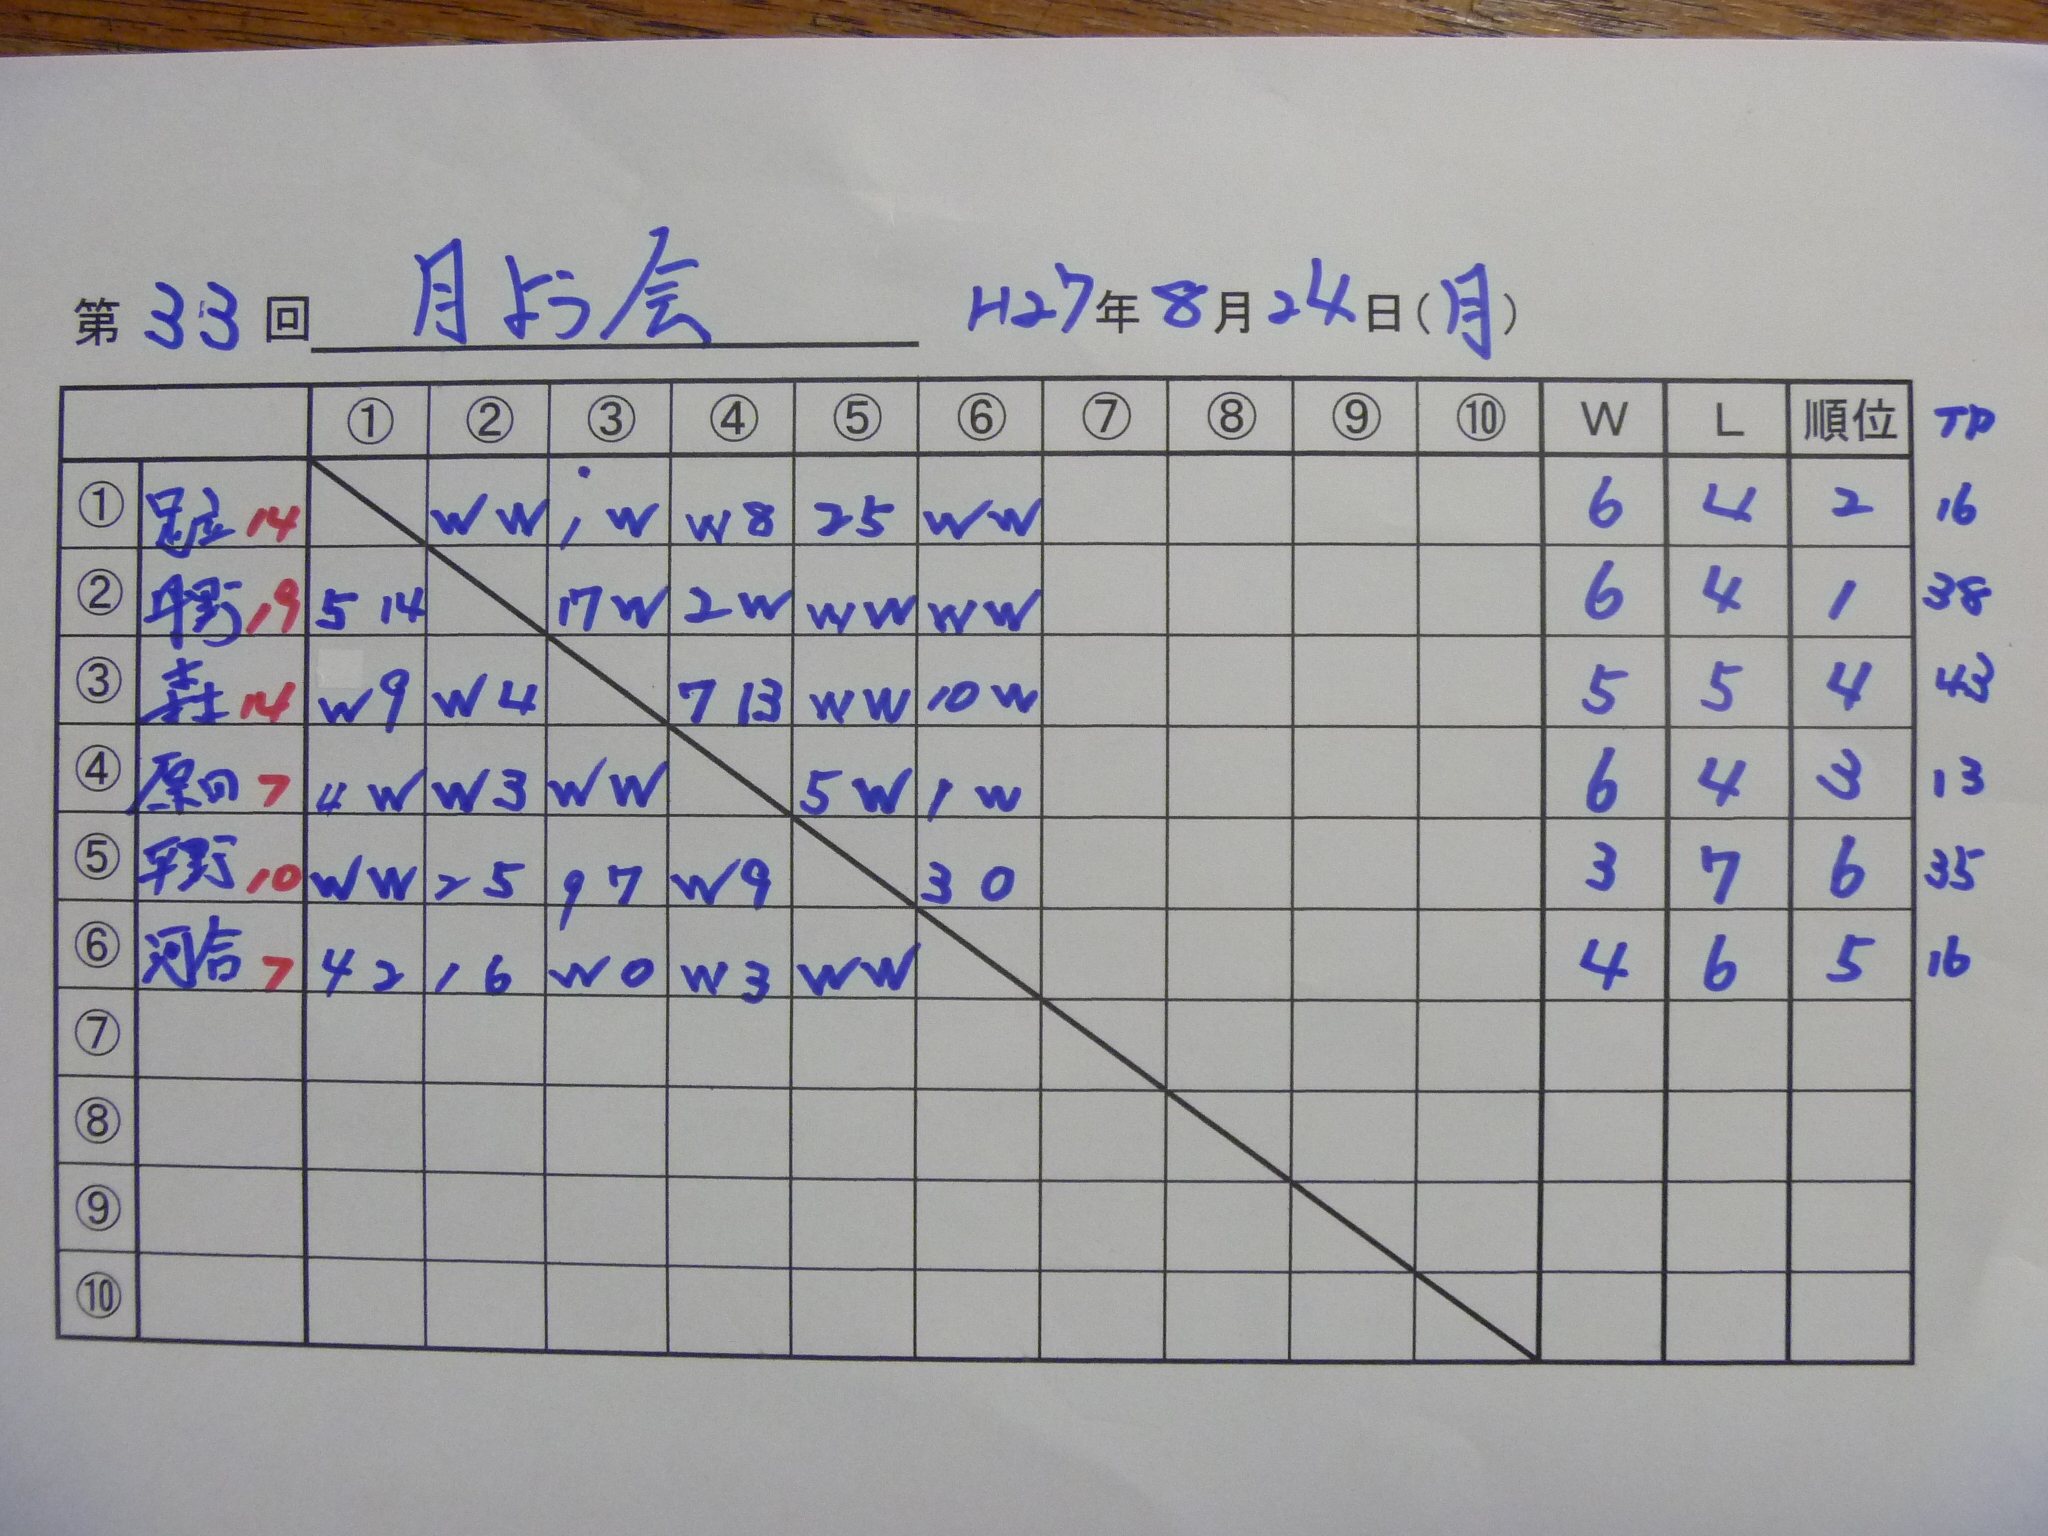 第 33 回 月よう会 H27年 8月 24日(月)
① ② ③ ④ ⑤ ⑥ ⑦ ⑧ ⑨ ⑩ W L 順位 TP
① 足立 14 W W 1 W W 8 2 5 W W 6 4 2 16
② 平野 19 5 14 17 W 2 W W W W W 6 4 1 38
③ 森 14 W 9 W 4 7 13 W W 10 W 5 5 4 43
④ 原田 7 4 W W 3 W W 5 W 1 W 6 4 3 13
⑤ 平野 10 W W 2 5 9 7 W 9 3 0 3 7 6 35
⑥ 河合 7 4 2 1 6 W 0 W 3 W W 4 6 5 16
⑦
⑧
⑨
⑩